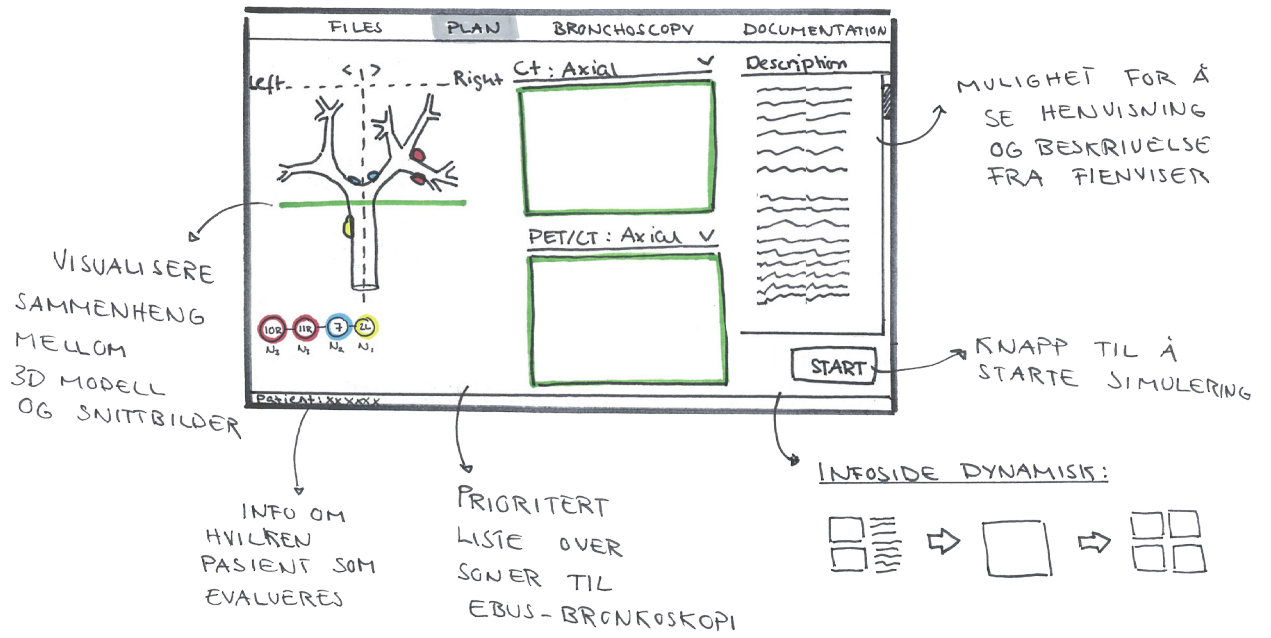 FILES PLAN BRONCHOSCOPY DOCUMENTATION
< >
Left Right
Ct: Axial
Description
PET/CT: Axial
10R 11R 7 2L
N3 N3 N2 N1
START
Patient: xxxxxx
MULIGHET FOR Å
SE HENVISNING
OG BESKRIVELSE
FRA HENVISER
VISUALISERE
SAMMENHENG
MELLOM
3D MODELL
OG SNITTBILDER
KNAPP TIL Å
STARTE SIMULERING
INFO OM
HVILKEN
PASIENT SOM
EVALUERES
PRIORITERT
LISTE OVER
SONER TIL
EBUS-BRONKOSKOPI
INFOSIDE DYNAMISK: